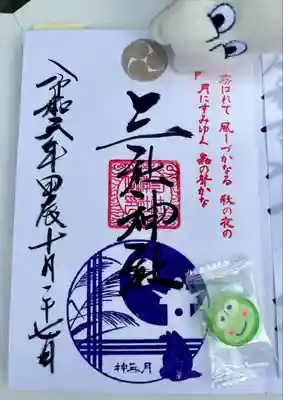 霧はれて 風しづかなる 秋の夜の
月にすみゆく 蟲の声かな
上三社神社
令和六年甲辰十月二十七日
神無月